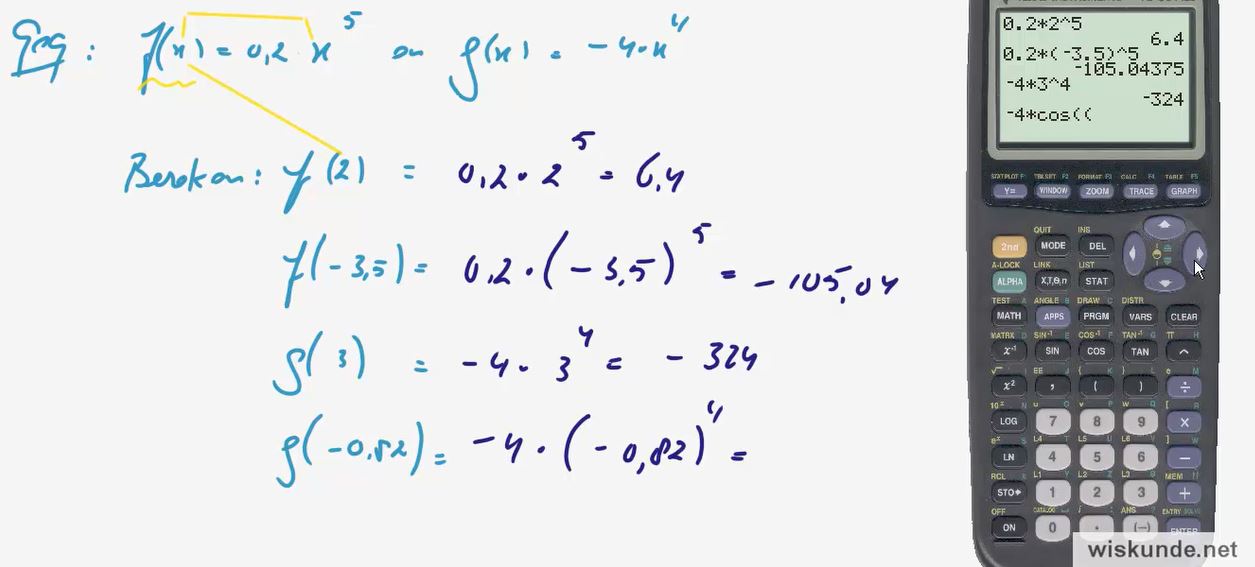 Geg: f(x) = 0,2 · x^5 en g(x) = -4·x^4
Bereken: f(2) = 0,2 · 2^5 = 6,4
f(-3,5) = 0,2 · (-3,5)^5 = -105,04
g(3) = -4 · 3^4 = -324
g(-0,82) = -4 · (-0,82)^4 =
0.2*2^5
6.4
0.2*(-3.5)^5
-105.04375
-4*3^4
-324
-4*cos((
STATPLOT F1 TBLSET F2 FORMAT F3 CALC F4 TABLE F5
Y= WINDOW ZOOM TRACE GRAPH
QUIT INS
2nd MODE DEL
A-LOCK LINK LIST
ALPHA X,T,Θ,n STAT
TEST A ANGLE B DRAW C DISTR
MATH APPS PRGM VARS CLEAR
MATRX D SIN⁻¹ E COS⁻¹ F TAN⁻¹ G π H
x⁻¹ SIN COS TAN ^
√ I EE J { K } L e M
x² , ( ) ÷
10ˣ N u O v P w Q [ R
LOG 7 8 9 ×
eˣ S L4 T L5 U L6 V ] W
LN 4 5 6 −
RCL X L1 Y L2 Z L3 θ MEM "
STO▸ 1 2 3 +
OFF CATALOG i : ANS ? ENTRY SOLVE
ON 0 . (-) ENTER
wiskunde.net